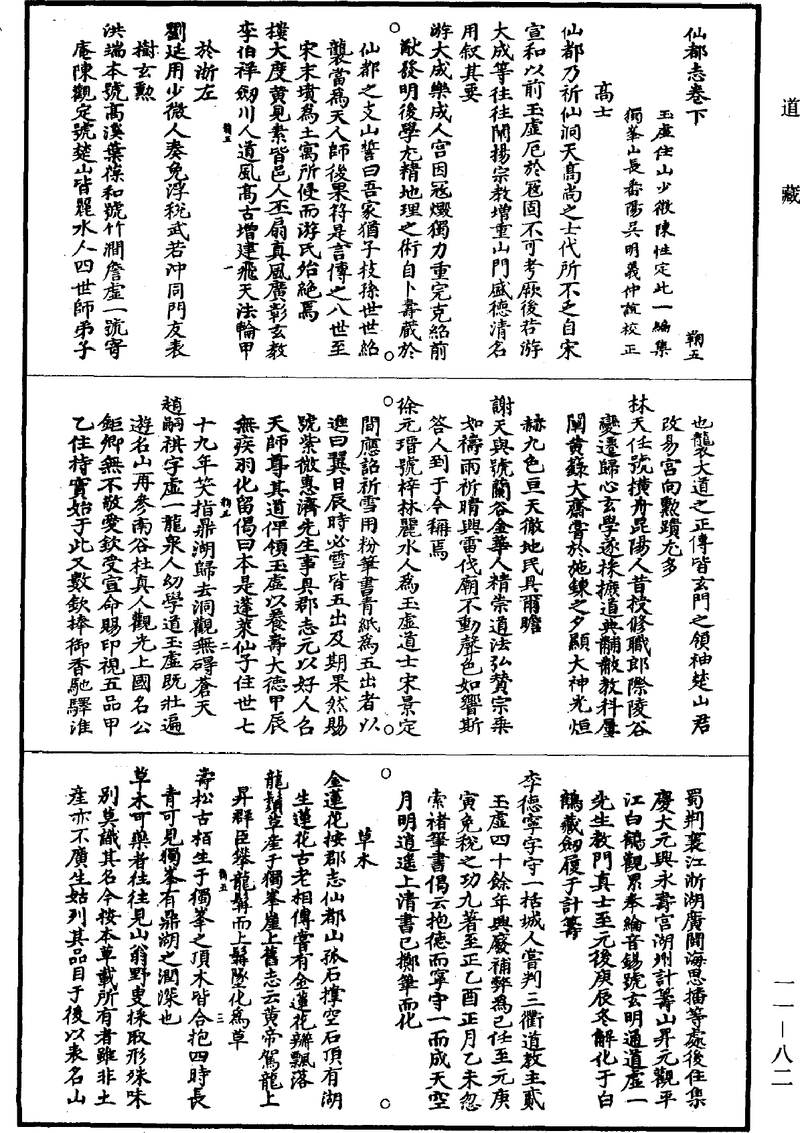 道藏
仙都志卷下 鞠五
玉虛住山少微陳性定此一編集
獨峯山長番陽吳明義仲誼校正
高士
仙都乃祈仙洞天高尚之士代所不乏自宋
宣和以前玉虛厄於寇固不可考厥後若游
大成等往往闡揚宗教增重山門盛德清名
用叙其要
游大成樂成人宫因寇燬獨力重完克紹前
猷發明後學尤精地理之術自卜壽藏於
仙都之支山誓曰吾家猶子枝孫世世紹
襲當為天人師後果符是言傳之八世至
宋末墳為土寓所侵而游氏始絶焉
樓大度黄見素皆邑人丕扇真風廣彰玄教
李伯祥劒川人道風高古增建飛天法輪甲
於浙左
劉延用少微人奏免浮稅武若沖同門友表
樹玄勲
洪端本號高溪葉葆和號竹澗詹虛一號寄
庵陳觀定號楚山皆麗水人四世師弟子
也襲大道之正傳皆玄門之領袖楚山君
改易宫向勲蹟尤多
林天任號橫舟昆陽人昔授修職郎際陵谷
變遷歸心玄學遂採摭道典黼黻教科屢
闡黄籙大齋嘗於施鍊之夕顯大神光烜
赫九色亘天徹地民具爾瞻
謝天與號蘭谷金華人精崇道法弘贊宗乘
如禱雨祈晴興雷伐廟不動聲色如響斯
答人到于今稱焉
徐元瑨號梓林麗水人為玉虛道士宋景定
間應詔祈雪用粉筆書青紙為五出者以
進曰翼日辰時必雪皆五出及期果然賜
號紫微惠濟先生事具郡志元以好人召
天師尊其道俾領玉虛以養壽大德甲辰
無疾羽化留偈曰本是蓬萊仙子住世七
十九年笑指鼎湖歸去洞觀無碍蒼天
趙嗣祺字虛一龍泉人幼學道玉虛既壯遍
遊名山再參南谷杜真人觀光上國名公
鉅卿無不敬愛欽受宣命賜印視五品甲
乙住持實始于此又數欽捧御香馳驛淮
蜀荆襄江浙湖廣閩海思播等處後住集
慶大元興永壽宫湖州計籌山昇元觀平
江白鶴觀累奉綸音錫號玄明通道虛一
先生教門真士至元後庚辰冬解化于白
鶴藏劒履于計籌
李德寧字守一括城人嘗判三衢道教主貳
玉虛四十餘年興廢補弊為己任至元庚
寅免稅之功尤著至正乙酉正月乙未忽
索褚筆書偈云抱德而寧守一而成天空
月明逍遙上清書已擲筆而化
草木
金蓮花按郡志仙都山孤石撑空石頂有湖
生蓮花古老相傳嘗有金蓮花瓣飄落
龍鬚草產于獨峯崖上舊志云黄帝駕龍上
昇群臣攀龍髯而上髯墜化為草
壽松古栢生于獨峯之頂木皆合抱四時長
青可見獨峯有鼎湖之潤深也
草木可藥者往往見山翁野叟採取形殊味
别莫識其名今按本草載所有者雖非土
産亦不廣生姑列其品目于後以表名山
鞠五 一
鞠五 二
鞠五 三
一一—八二